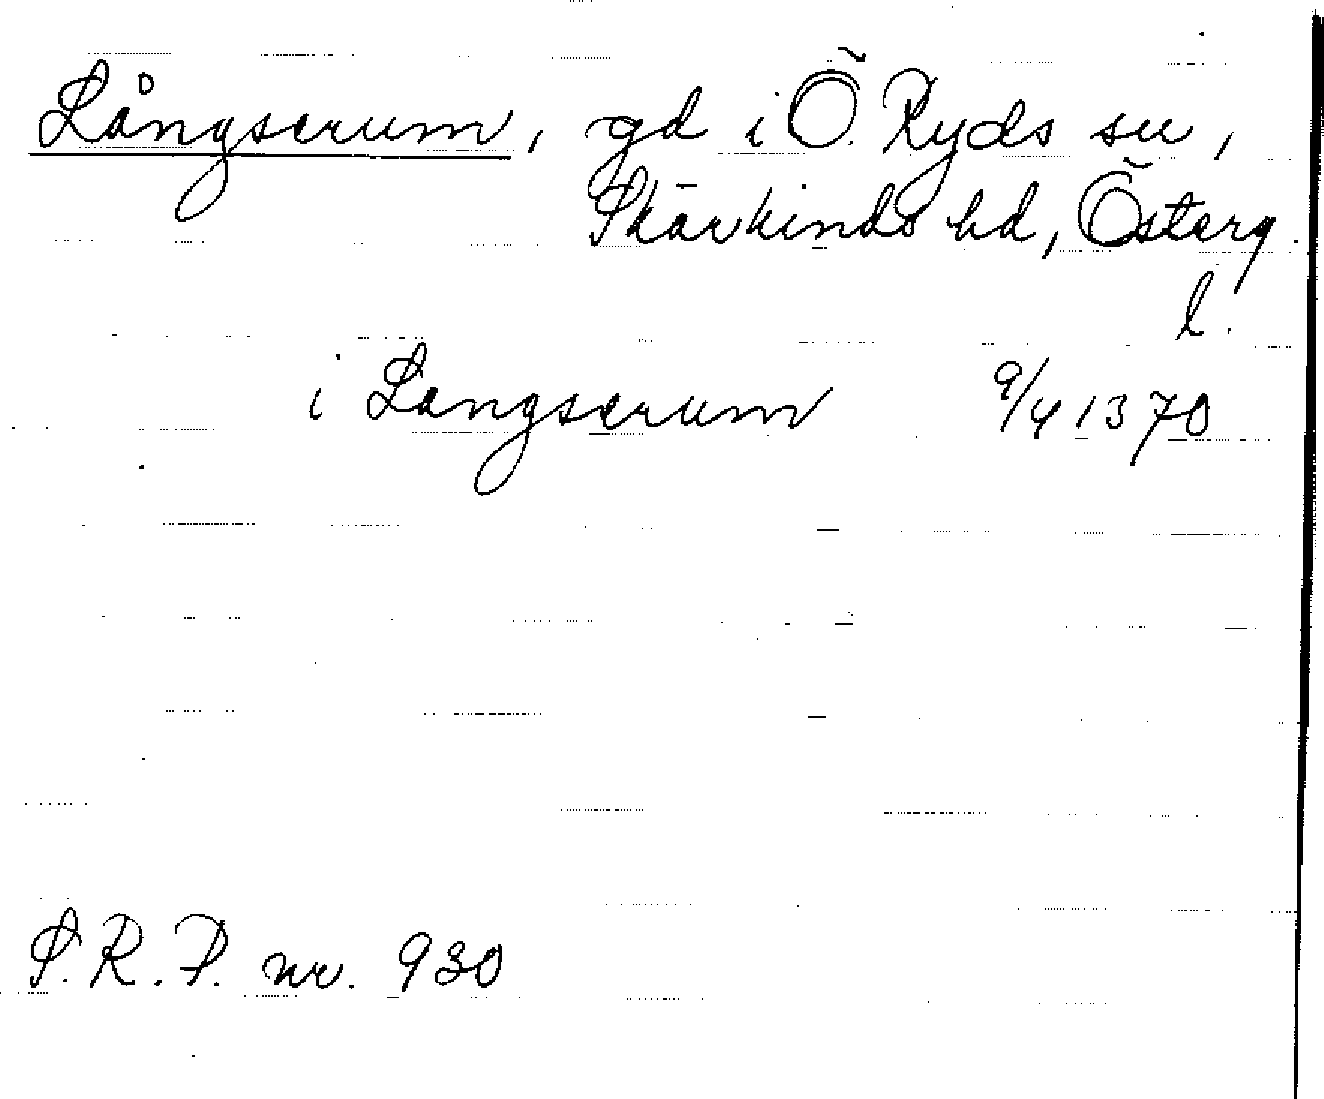 Långserum, gd i Ö. Ryds sn,
Skärkinds hd, Österg.
l.
i Langserum 9/4 1370
S.R.P. nr. 930